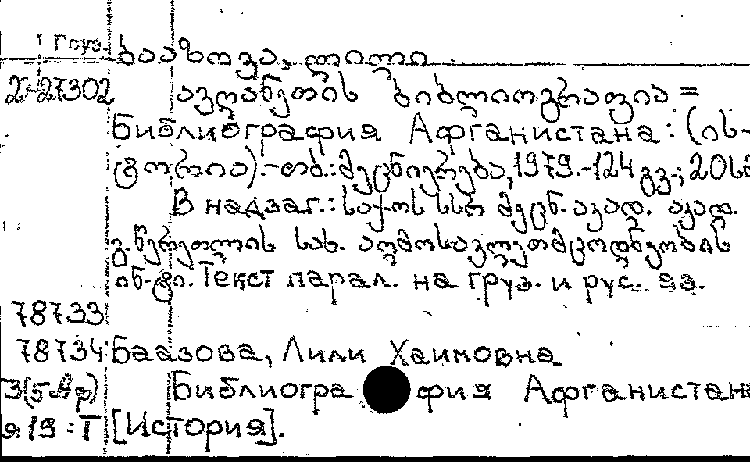 Груз. ბააზოვა, ლილი
2-27302 ავღანეთის ბიბლიოგრაფია =
Библиография Афганистана: (ის-
ტორია).-თბ.:მეცნიერება,1979.-124 გვ.; 20სმ
В надзаг.: საქ-ოს სსრ მეცნ. აკად. აკად.
გ. წერეთლის სახ. აღმოსავლეთმცოდნეობის
ინ-ტი. Текст парал. на груз. и рус. яз.
78733
78734 Баазова, Лили Хаимовна
3(5Афг) Библиография Афганистана
я19 : Т [История].